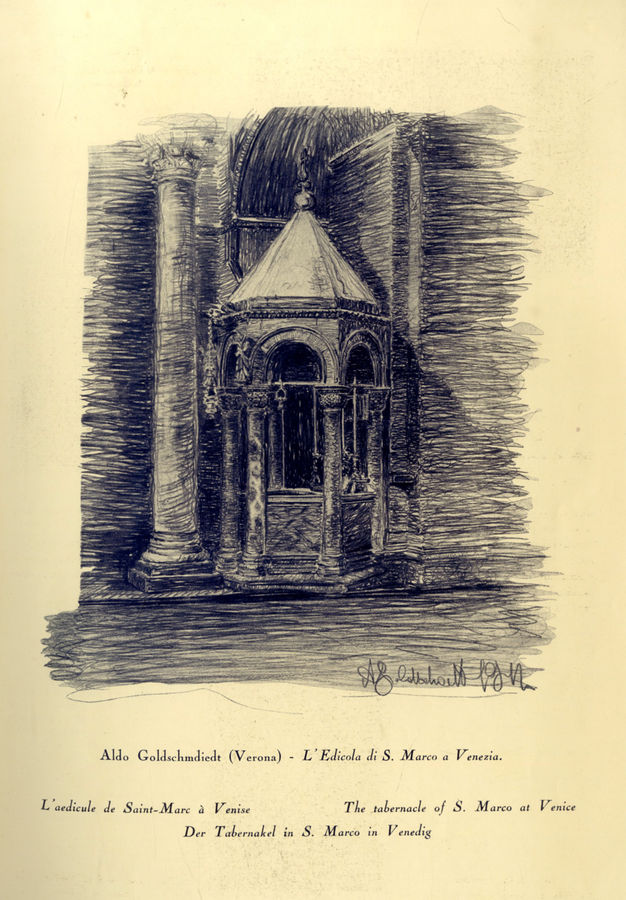 Aldo Goldschmdiedt (Verona) - L'Edicola di S. Marco a Venezia.
L'aedicule de Saint-Marc à Venise
The tabernacle of S. Marco at Venice
Der Tabernakel in S. Marco in Venedig